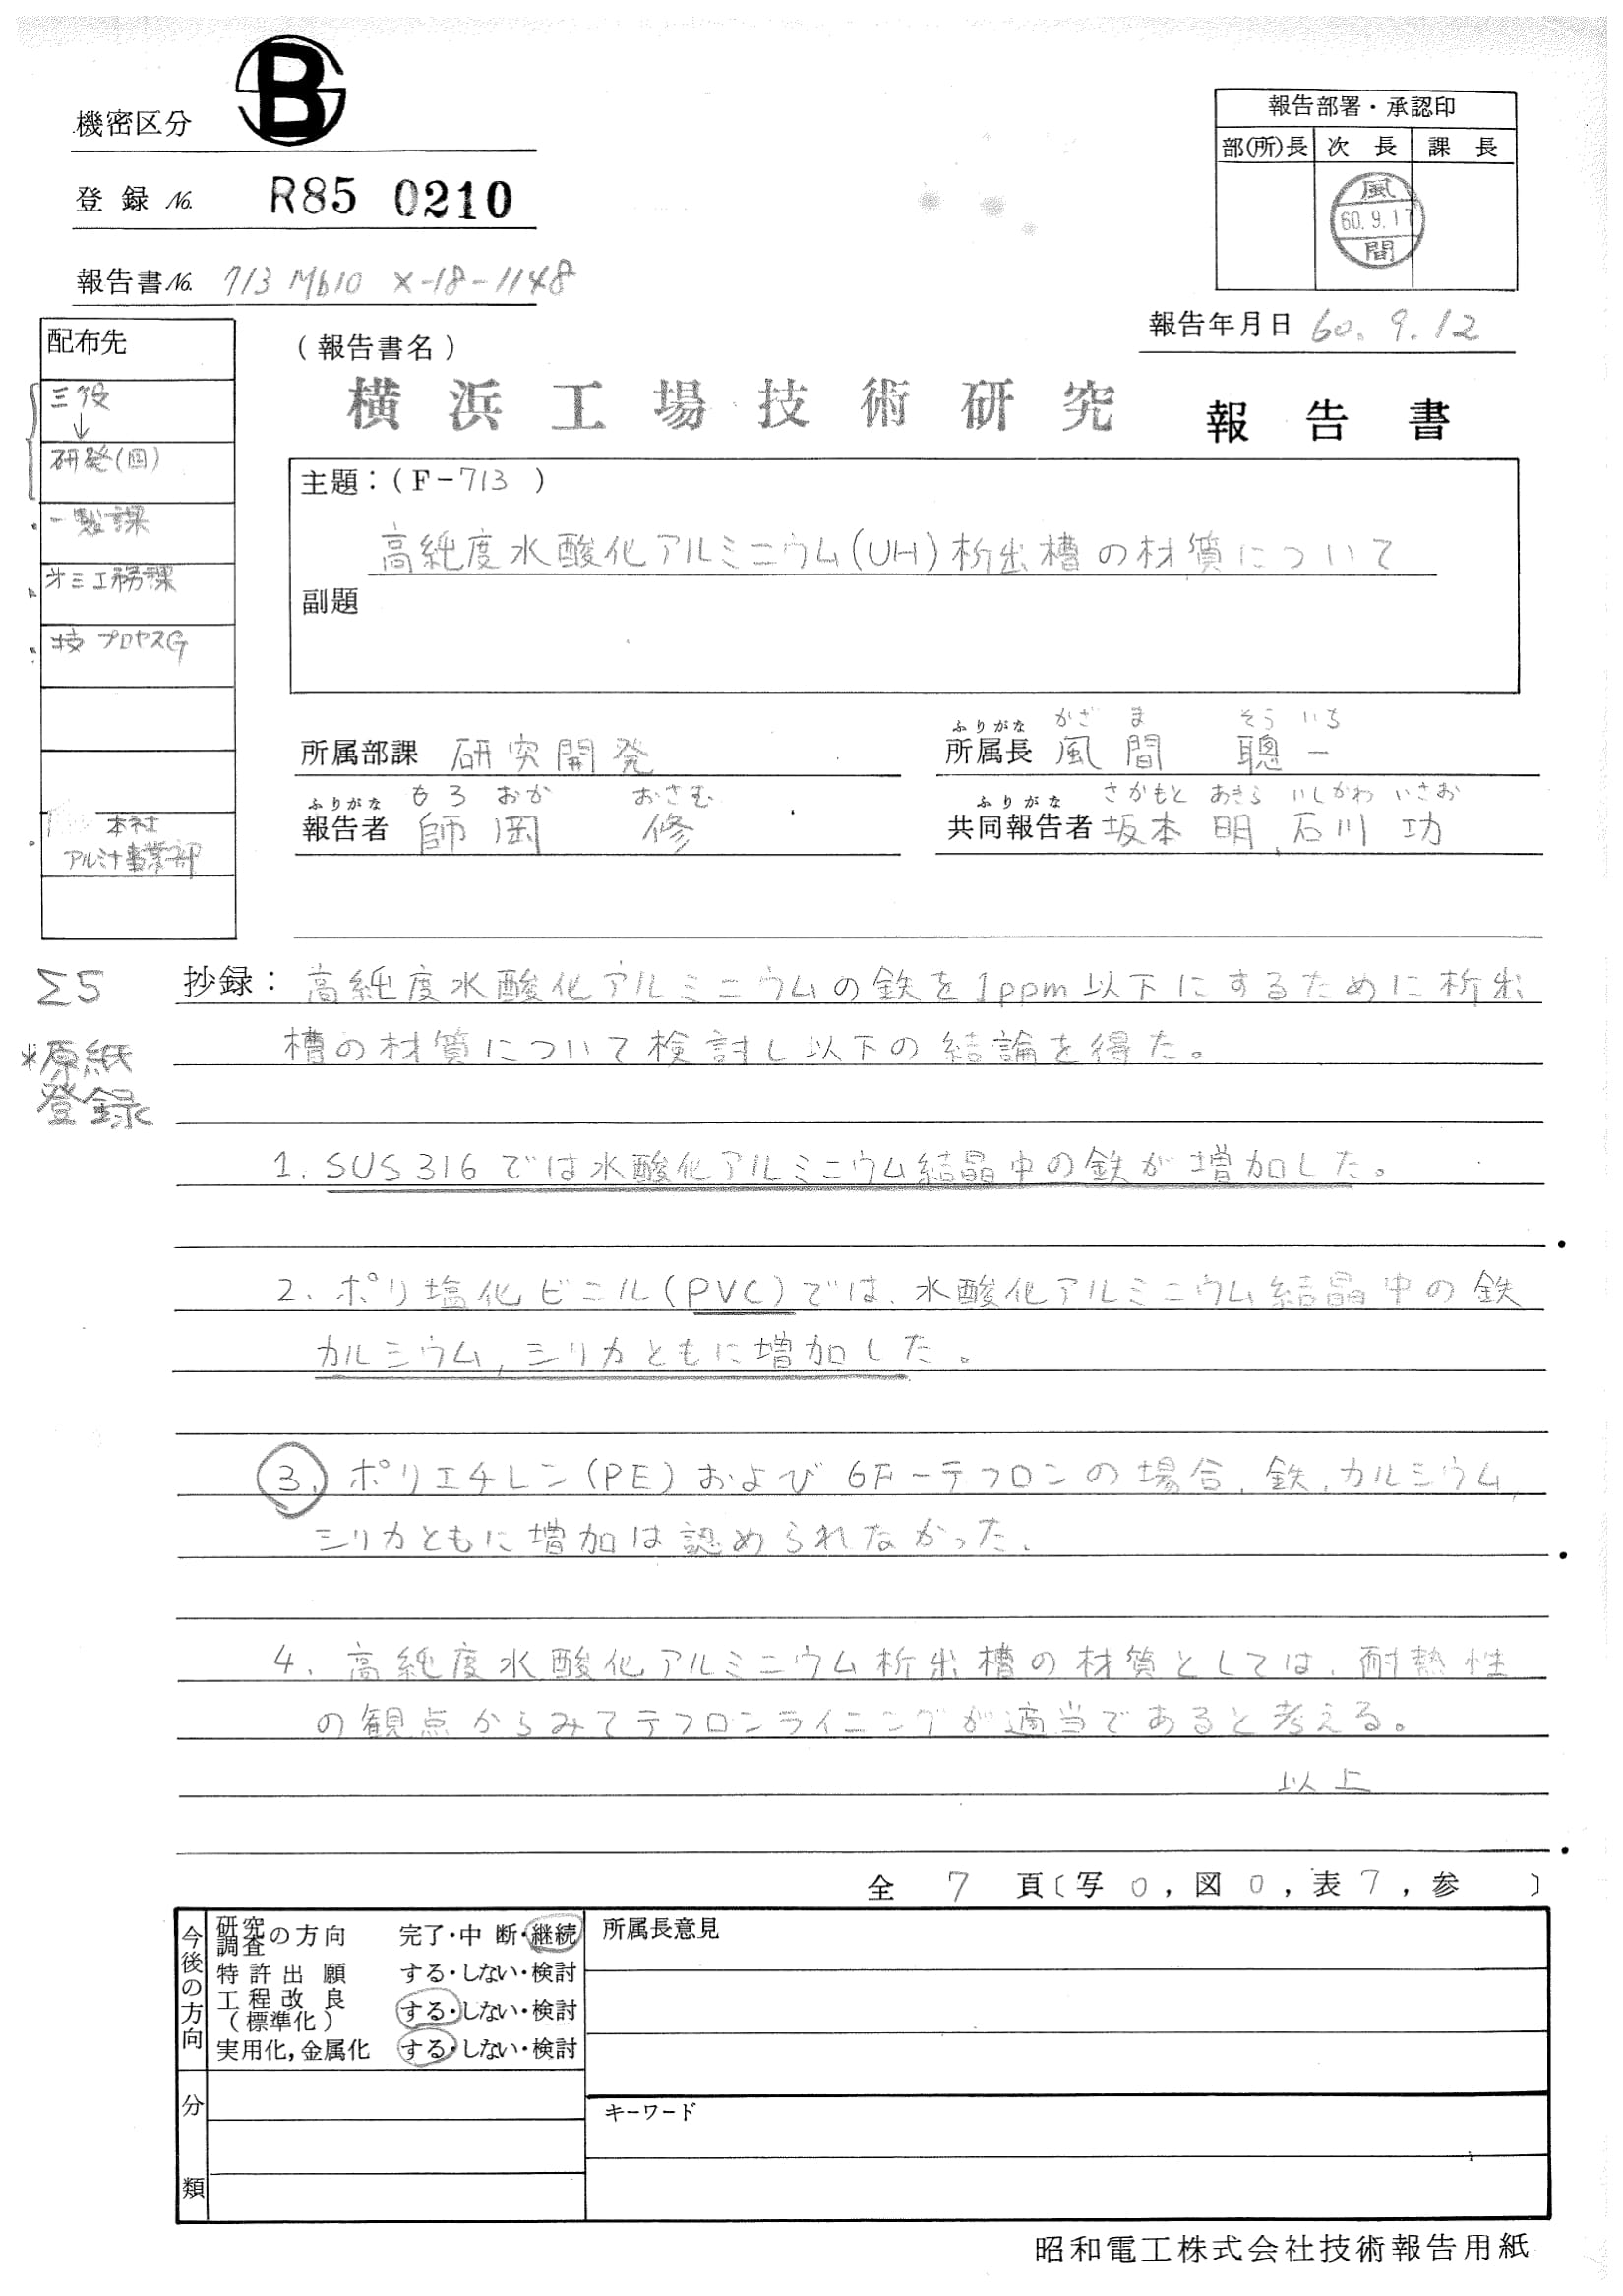 機密区分 B
登録 No. R85 0210
報告書No. 713 M610 X-18-1148
報告部署・承認印
部(所)長 次長 課長
風
60.9.17
間
報告年月日 60.9.12
配布先
三役
↓
研発(回)
一製課
オ三工務課
技 プロセスG
本社
アルミナ事業部
(報告書名)
横浜工場技術研究 報告書
主題:(F-713)
高純度水酸化アルミニウム(UH)析出槽の材質について
副題
所属部課 研究開発
ふりがな かざま そういち
所属長 風間 聰一
ふりがな もろおか おさむ
報告者 師岡 修
ふりがな さかもと あきら いしかわ いさお
共同報告者 坂本 明, 石川 功
Σ5
*原紙
登録
抄録: 高純度水酸化アルミニウムの鉄を1ppm以下にするために析出
槽の材質について検討し以下の結論を得た。
1. SUS316では水酸化アルミニウム結晶中の鉄が増加した。
2、ポリ塩化ビニル(PVC)では、水酸化アルミニウム結晶中の鉄
カルミウム, シリカともに増加した。
3、ポリエチレン(PE)および6F-テフロンの場合、鉄、カルミウム,
シリカともに増加は認められなかった、
4、高純度水酸化アルミニウム析出槽の材質としては、耐熱性
の観点からみてテフロンライニングが適当であると考える。
以上
全 7 頁〔写 0, 図 0, 表 7, 参 〕
今後の方向
研究調査の方向 完了・中断・継続
特許出願 する・しない・検討
工程改良 する・しない・検討
(標準化)
実用化,金属化 する・しない・検討
分類
所属長意見
キーワード
昭和電工株式会社技術報告用紙